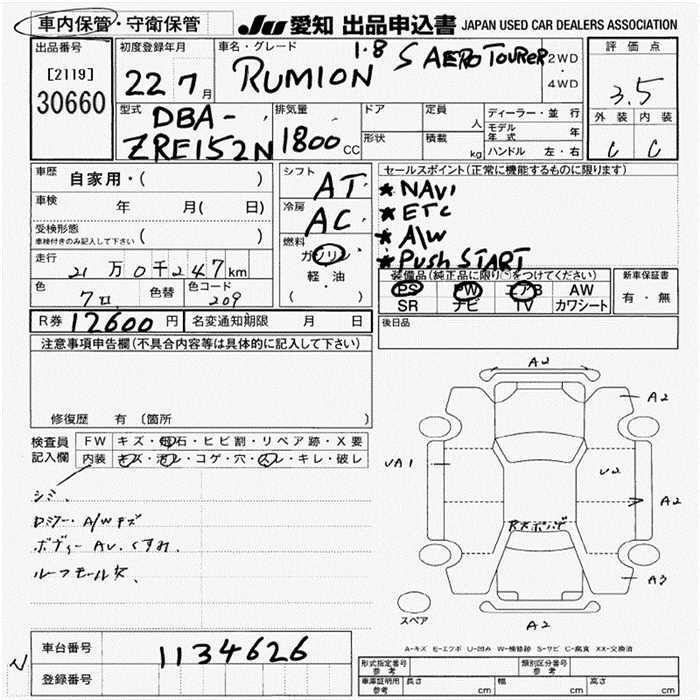 車内保管・守衛保管
JU 愛知 出品申込書 JAPAN USED CAR DEALERS ASSOCIATION
出品番号
[2119]
30660
初度登録年月
22 7月
車名・グレード
RUMION 1.8 S AERO TOURER
2WD
・
4WD
評価点
3.5
外装 内装
C C
型式
DBA-
ZRE152N
排気量
1800 CC
ドア
形状
定員
人
積載
kg
ディーラー・並行
モデル年式 年
ハンドル 左・右
車歴 自家用・( )
車検 年 月( 日)
受検形態
車検付きのみ記入して下さい ( )
走行 21万0千247km
色 7ロ. 色替 色コード 209
シフト AT
冷房 AC
燃料
ガソリン
・
軽・油
( )
セールスポイント(正常に機能するものに限ります)
★ NAVI
★ ETC
★ A/W
★ Push START
装備品(純正品に限り○をつけてください)
PS PW エアB AW
SR ナビ TV カワシート
新車保証書
有・無
R券 12600円 名変通知期限 月 日
後日品
注意事項申告欄(不具合内容等は具体的に記入して下さい)
修復歴 有 〔箇所 〕
検査員
記入欄
FW キズ・飛石・ヒビ割・リペア跡・X要
内装 キズ・汚レ・コゲ・穴・スレ・キレ・破レ
シミ、
ロミラー・A/Wキズ
ボディーAU.くすみ.
ルーフモール欠、
A2
A2
UA1
U2
A2
A3
A2
スペア
A-キズ E-エクボ U-凹み W-補修跡 S-サビ C-腐食 XX-交換済
車台番号 1134626
登録番号
N
形式指定番号
参考
類別区分番号
参考
車庫証明用
参考
長さ cm 幅 cm 高さ cm